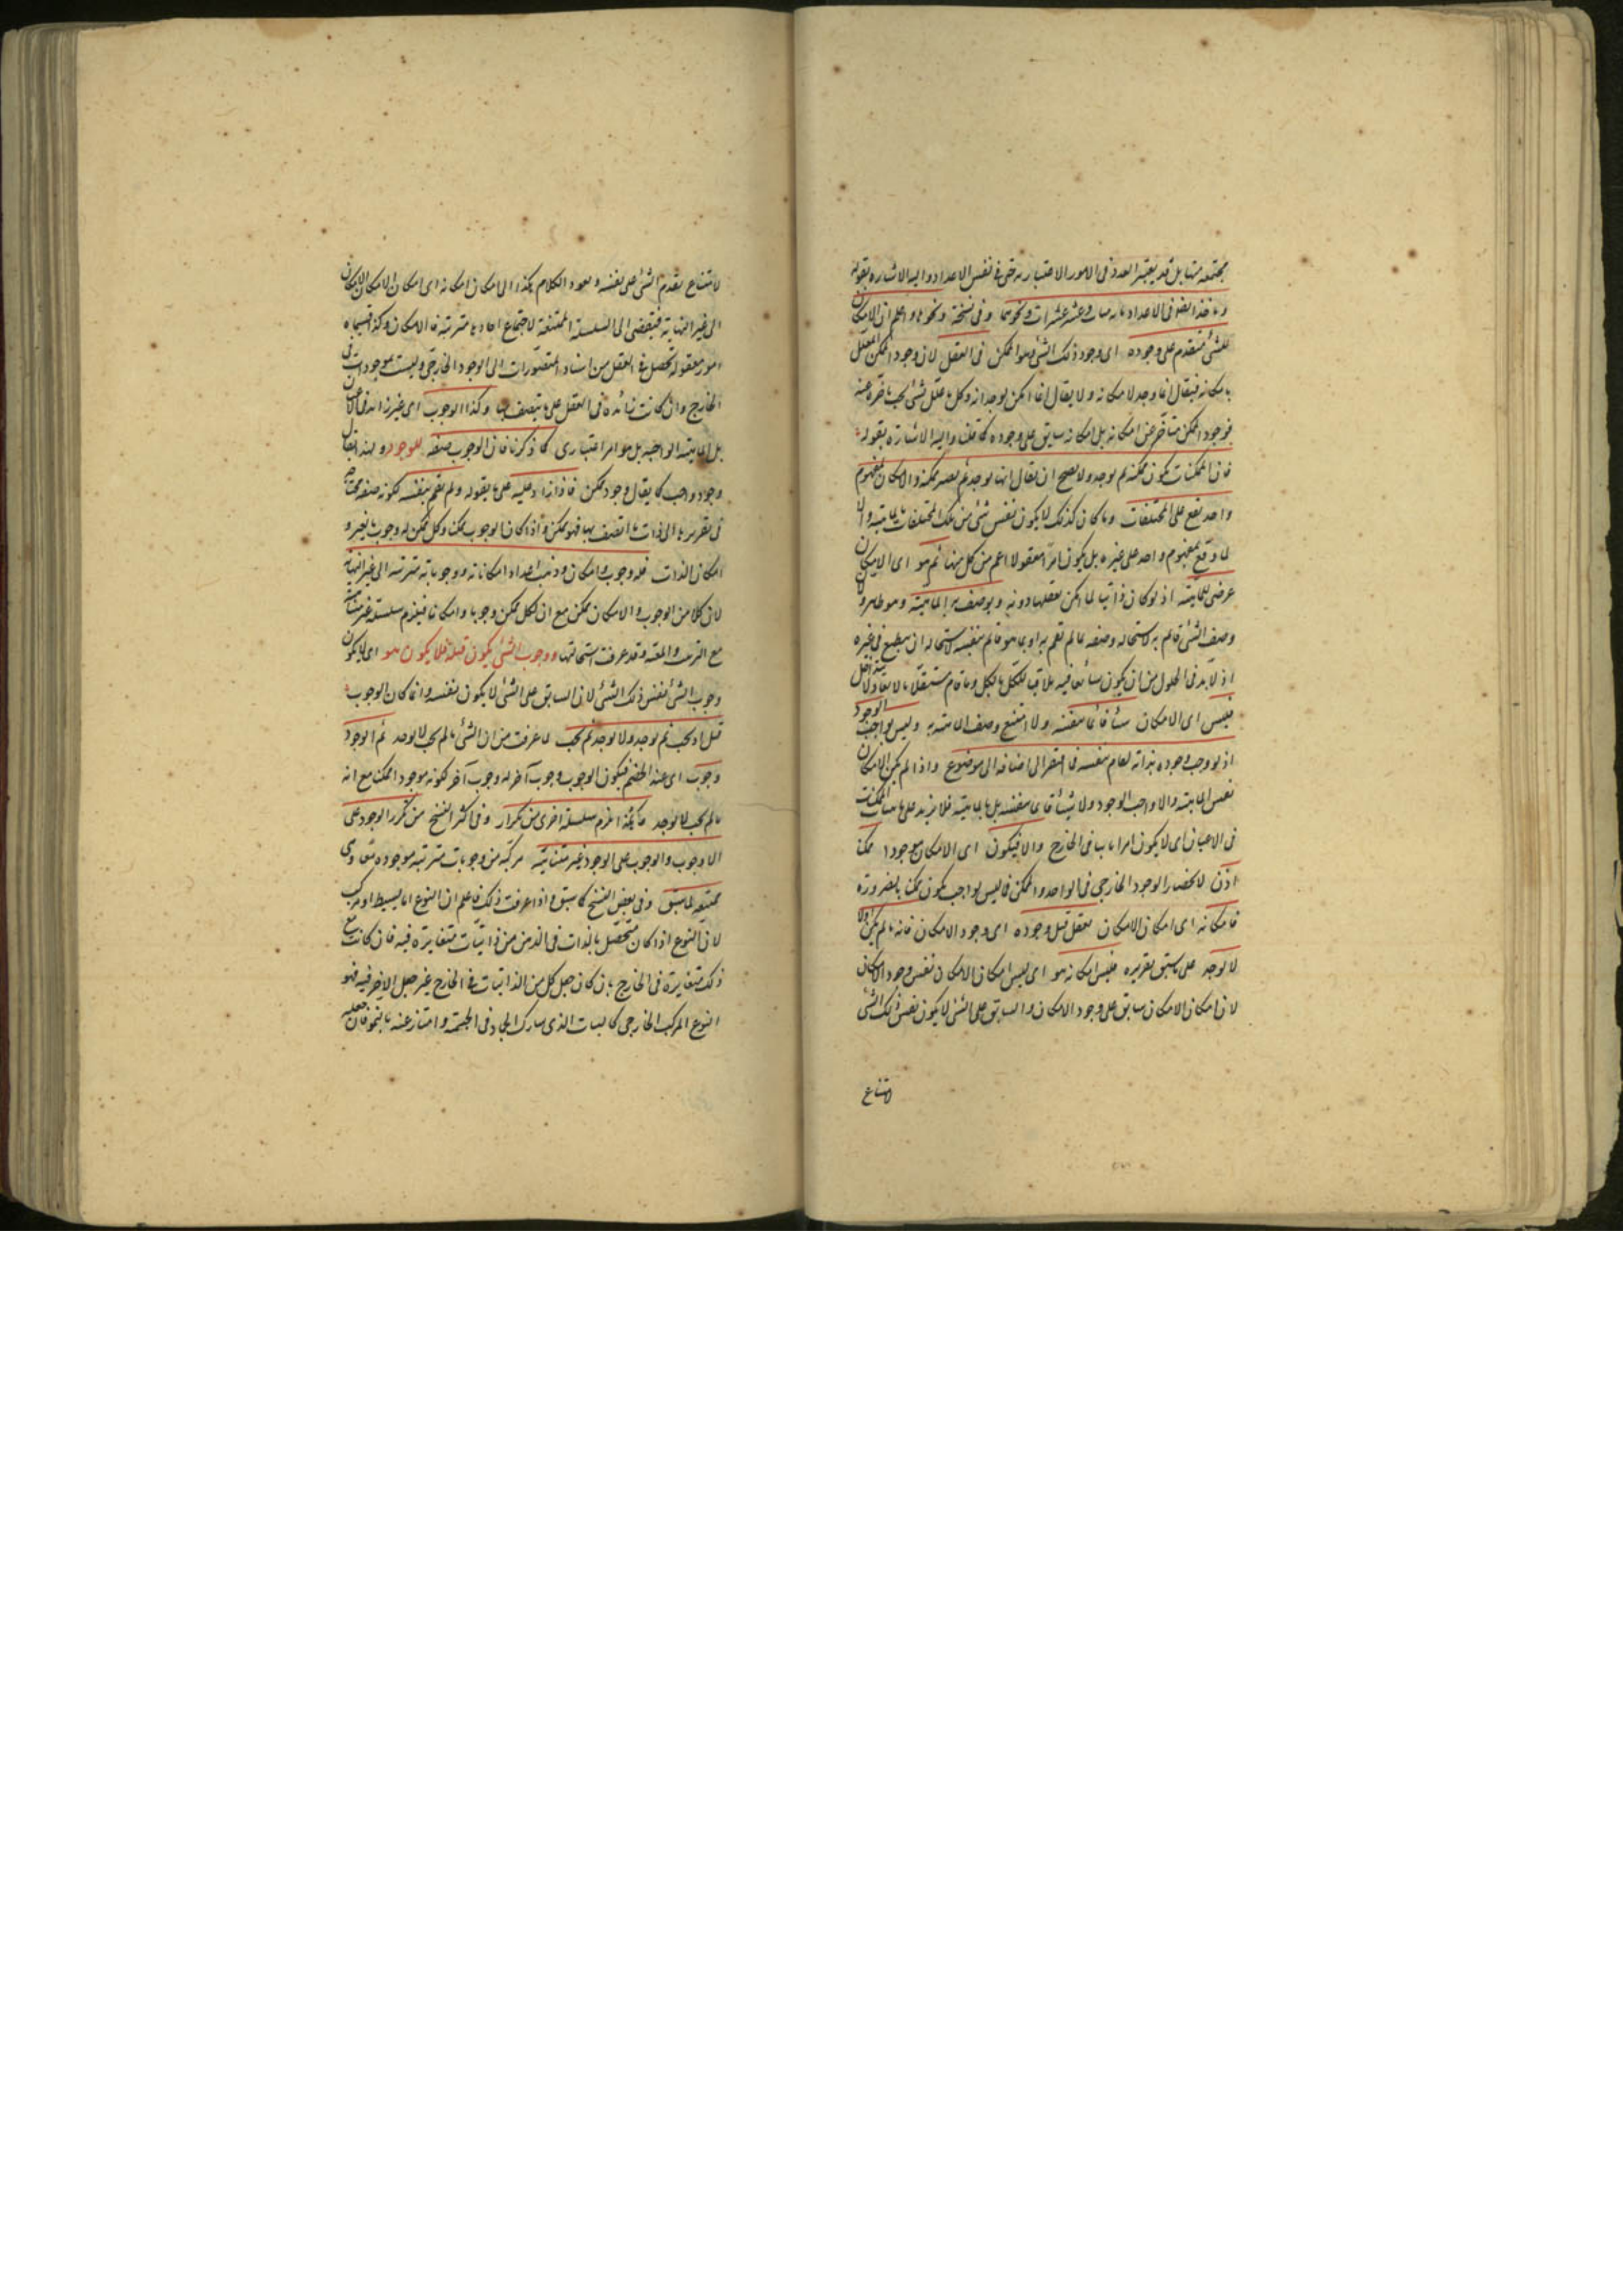 مجتمعة متقابل قد يعتبر العدد في الامور الاعتبارية حتى في نفس الاعداد واليه الاشارة بقوله
وناخذ ايضا في الاعداد ثلاث مئات وعشر عشرات ونحوهما وفي نسخة ونحوها واعلم ان الامكان
للشئ متقدم على وجوده اى وجود ذلك الشئ وهو الممكن في العقل لان وجود الممكن المعلل
بامكانه فيقال انما وجد لامكانه ولا يقال انما امكن لوجدانه وكل ما علل بشئ يجب تاخره عنه
فوجود الممكن متأخر عن امكانه بل امكانه سابق على وجوده كما قلنا واليه الاشارة بقوله
فان الممكنات تكون ممكنة ثم توجد ولا يصح ان يقال انها توجد ثم تصير ممكنة والامكان بمفهوم
واحد يقع على المختلفات وما كان كذلك لا يكون نفس شئ من تلك المختلفات بالماهية والا
لما وقع بمفهوم واحد على غيره بل يكون امرا معقولا اعم من كل منها ثم هو اى الامكان
عرضى للماهية اذ لو كان ذاتيا لما امكن تعقلها دونه ويوصف به الماهية وهو ظاهر ولان
وصف الشئ قائم به لاستحالة وصفه بما لم تقم به او بما هو قائم بنفسه لاستحالة ان ينطبع في غيره
اذ لا بد في الحلول من ان يكون شائعا فيه ملاقيا للكل بالكل وما قام مستقلا
فليس اى الامكان شيئا قائما بنفسه ولا امتنع وصف الماهية به وليس بواجب الوجود
اذ لو وجب وجوده بذاته لقام بنفسه فما افتقر الى اضافة الى موضوع واذا لم يكن الامكان
نفس الماهية ولا واجب الوجود ولا شيئا قائما بنفسه بل بالماهية فلا يزيد على ماهيات الممكنات
في الاعيان اى لا يكون امرا ثابتا في الخارج والا فيكون اى الامكان موجودا ممكنا
اذن لانحصار الوجود الخارجى في الواجد والممكن فما ليس بواجب يكون ممكنا بالضرورة
فامكانه اى امكان الامكان يعقل قبل وجوده اى وجود الامكان فانه ما لم يمكن اولا
لا يوجد على ما سبق تقريره فليس امكانه هو اى ليس امكان الامكان نفس وجود الامكان
لان امكان الامكان سابق على وجود الامكان والسابق على الشئ لا يكون نفس ذلك الشئ
لامتناع
لامتناع تقدم الشئ على نفسه ويعود الكلام هكذا الى امكان امكانه اى امكان الامكان
الى غير النهاية فيفضى الى السلسلة الممتنعة لاجتماع احادها مترتبة فالامكان وكذا قسيماه
امور معقولة تحصل في العقل من اسناد المتصورات الى الوجود الخارجى وليست بموجودات في
الخارج وان كانت زائدة في العقل على ما يتصف بها وكذا الوجوب اى غير زائد في الاعيان
على الماهية الواجبة بل هو امر اعتبارى كما ذكرنا فان الوجوب صفة للوجود ولهذا يقال
وجود واجب كما يقال وجود ممكن فاذا زاد عليه على ما يقوله ولم يقم بنفسه لكونه صفة محتاجة
في تقررها الى ذات ما اتصف بها فهو ممكن واذا كان الوجوب ممكنا وكل ممكن له وجوب بالغير و
امكان بالذات فله وجوب وامكان وذهب اعداد امكاناته ووجوباته مترتبة الى غير النهاية
لان كلا من الوجوب والامكان ممكن مع ان لكل ممكن وجوبا وامكانا فيلزم سلسلة غير متناهية
مع الترتب والمعية وقد عرفت استحالتها ووجوب الشئ يكون قبله فلا يكون هو اى لا يكون
وجوب الشئ نفس ذلك الشئ لان السابق على الشئ لا يكون نفسه وانما كان الوجوب
قبل اذ يجب ثم يوجد ولا يوجد ثم يجب لما عرفت من ان الشئ ما لم يجب لا يوجد ثم للوجود
وجوب اى عند الخصم فيكون للوجوب وجوب آخر له وجوب آخر لكونه موجودا ممكنا مع انه
ما لم يجب لا يوجد فالحجة يلزم سلسلة اخرى من تكرار وفي اكثر النسخ من تكرر الوجود على
الوجوب والوجوب على الوجود غير متناهية مركبة من وجوبات مترتبة موجودة معا وهى
ممتنعة لما سبق وفي بعض النسخ كما سبق واذا عرفت ذلك فاعلم ان النوع اما بسيط او مركب
لان النوع اذا كان متحصل بالذات في الذهن من ذاتيات متغايرة فيه فان كانت مع
ذلك متغايرة في الخارج بان كان جعل كل من الذاتيات في الخارج غير جعل الاخر فيه فهو
النوع المركب الخارجى كالنبات الذى شارك الجماد في الجسمية وامتاز عنه بالنمو فان جعله